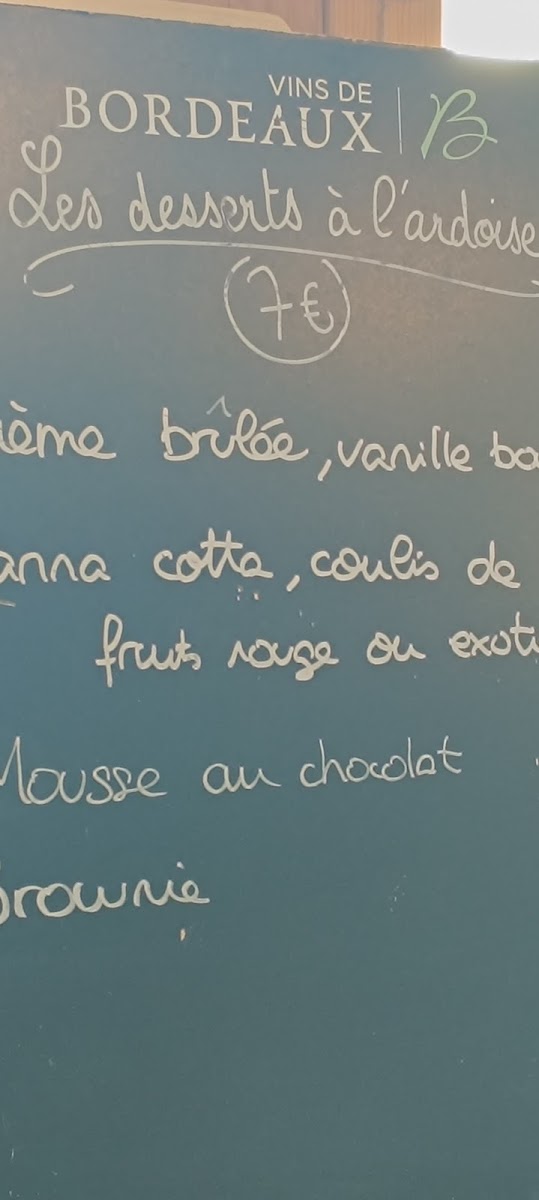 VINS DE
BORDEAUX B
Les desserts à l'ardoise
7€
ième brûlée, vanille bo
anna cotta, coulis de
fruits rouge ou exoti
Mousse au chocolat
Brownie